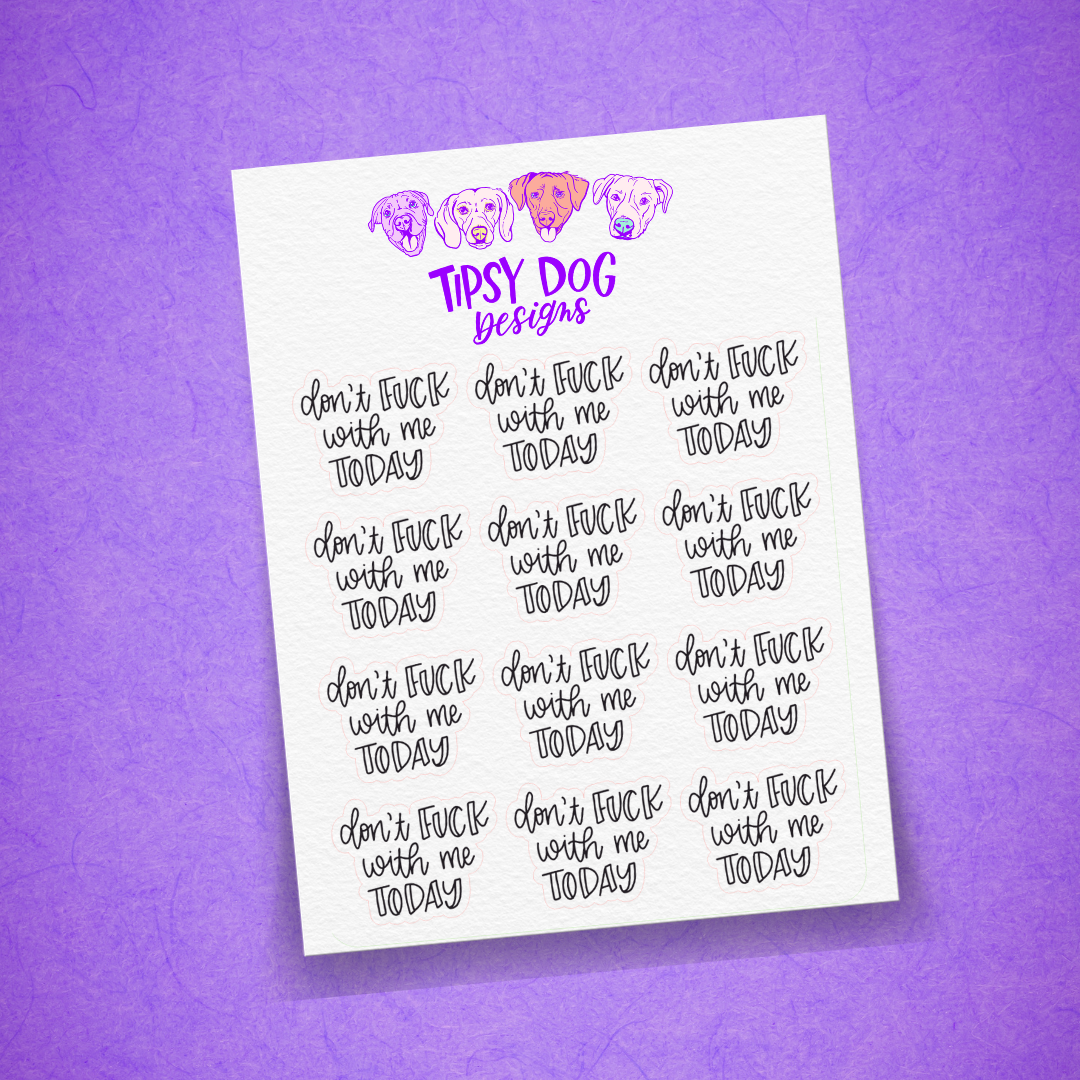 TIPSY DOG
Designs
don't FUCK don't FUCK don't FUCK
with me with me with me
TODAY TODAY TODAY
don't FUCK don't FUCK don't FUCK
with me with me with me
TODAY TODAY TODAY
don't FUCK don't FUCK don't FUCK
with me with me with me
TODAY TODAY TODAY
don't FUCK don't FUCK don't FUCK
with me with me with me
TODAY TODAY TODAY